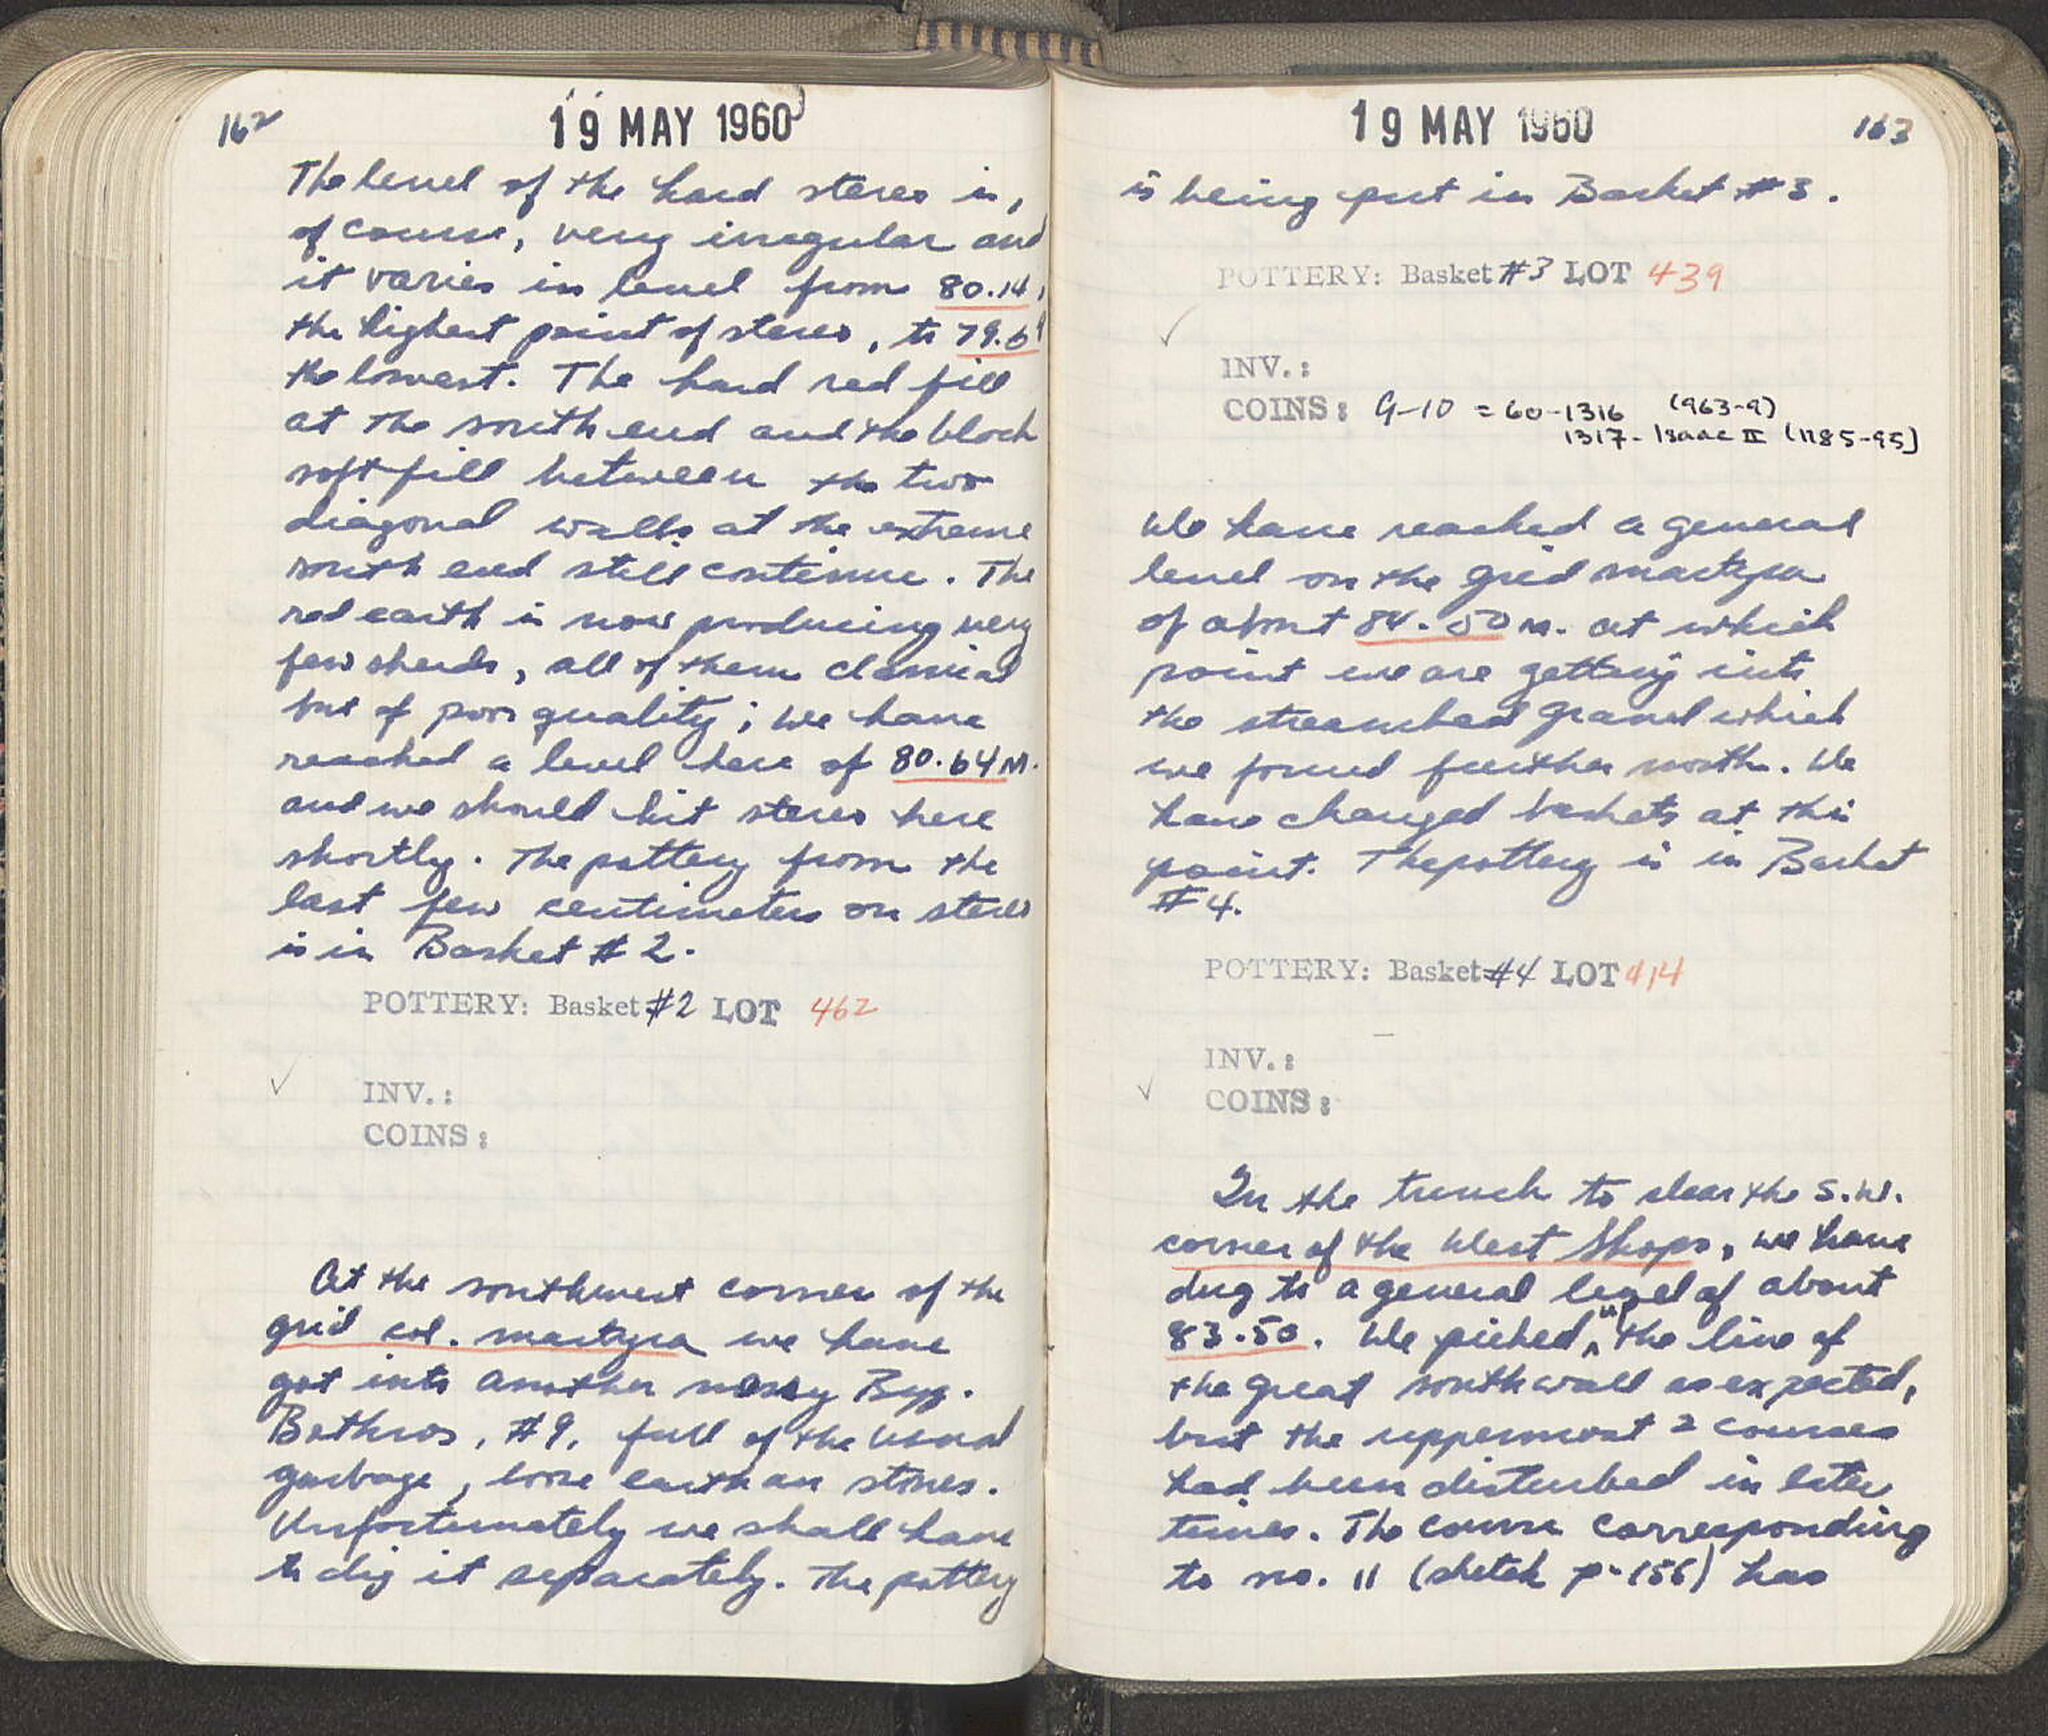 162
19 MAY 1960
The level of the hard stereo is,
of course, very irregular and
it varies in level from 80.14,
the highest point of stereo, to 79.69
the lowest. The hard red fill
at the south end and the black
soft fill between the two
diagonal walls at the extreme
south end still continue. The
red earth is now producing very
few sherds, all of them classical
but of poor quality; we have
reached a level here of 80.64 M.
and we should hit stereo here
shortly. The pottery from the
last few centimeters on stereo
is in Basket # 2.
POTTERY: Basket #2 LOT 462
INV.:
COINS:
At the southwest corner of the
grid col. martyra we have
got into another messy Byz.
Bothros, #9, full of the usual
garbage, loose earth an stones.
Unfortunately we shall have
to dig it separately. The pottery
19 MAY 1960
163
is being put in Basket # 3.
POTTERY: Basket #3 LOT 439
INV.:
COINS: 9-10 = 60-1316 (963-9)
1317 - Isaac II (1185-95)
We have reached a general
level on the grid martyra
of about 84.50 M. at which
point we are getting into
the streambed gravel which
we found further north. We
have changed baskets at this
point. The pottery is in Basket
# 4.
POTTERY: Basket #4 LOT 414
INV.:
COINS:
In the trench to clear the S.W.
corner of the West Shops, we have
dug to a general level of about
83.50. We picked up the line of
the great south wall as expected,
but the uppermost 2 courses
had been disturbed in later
times. The course corresponding
to no. 11 (sketch p. 156) has